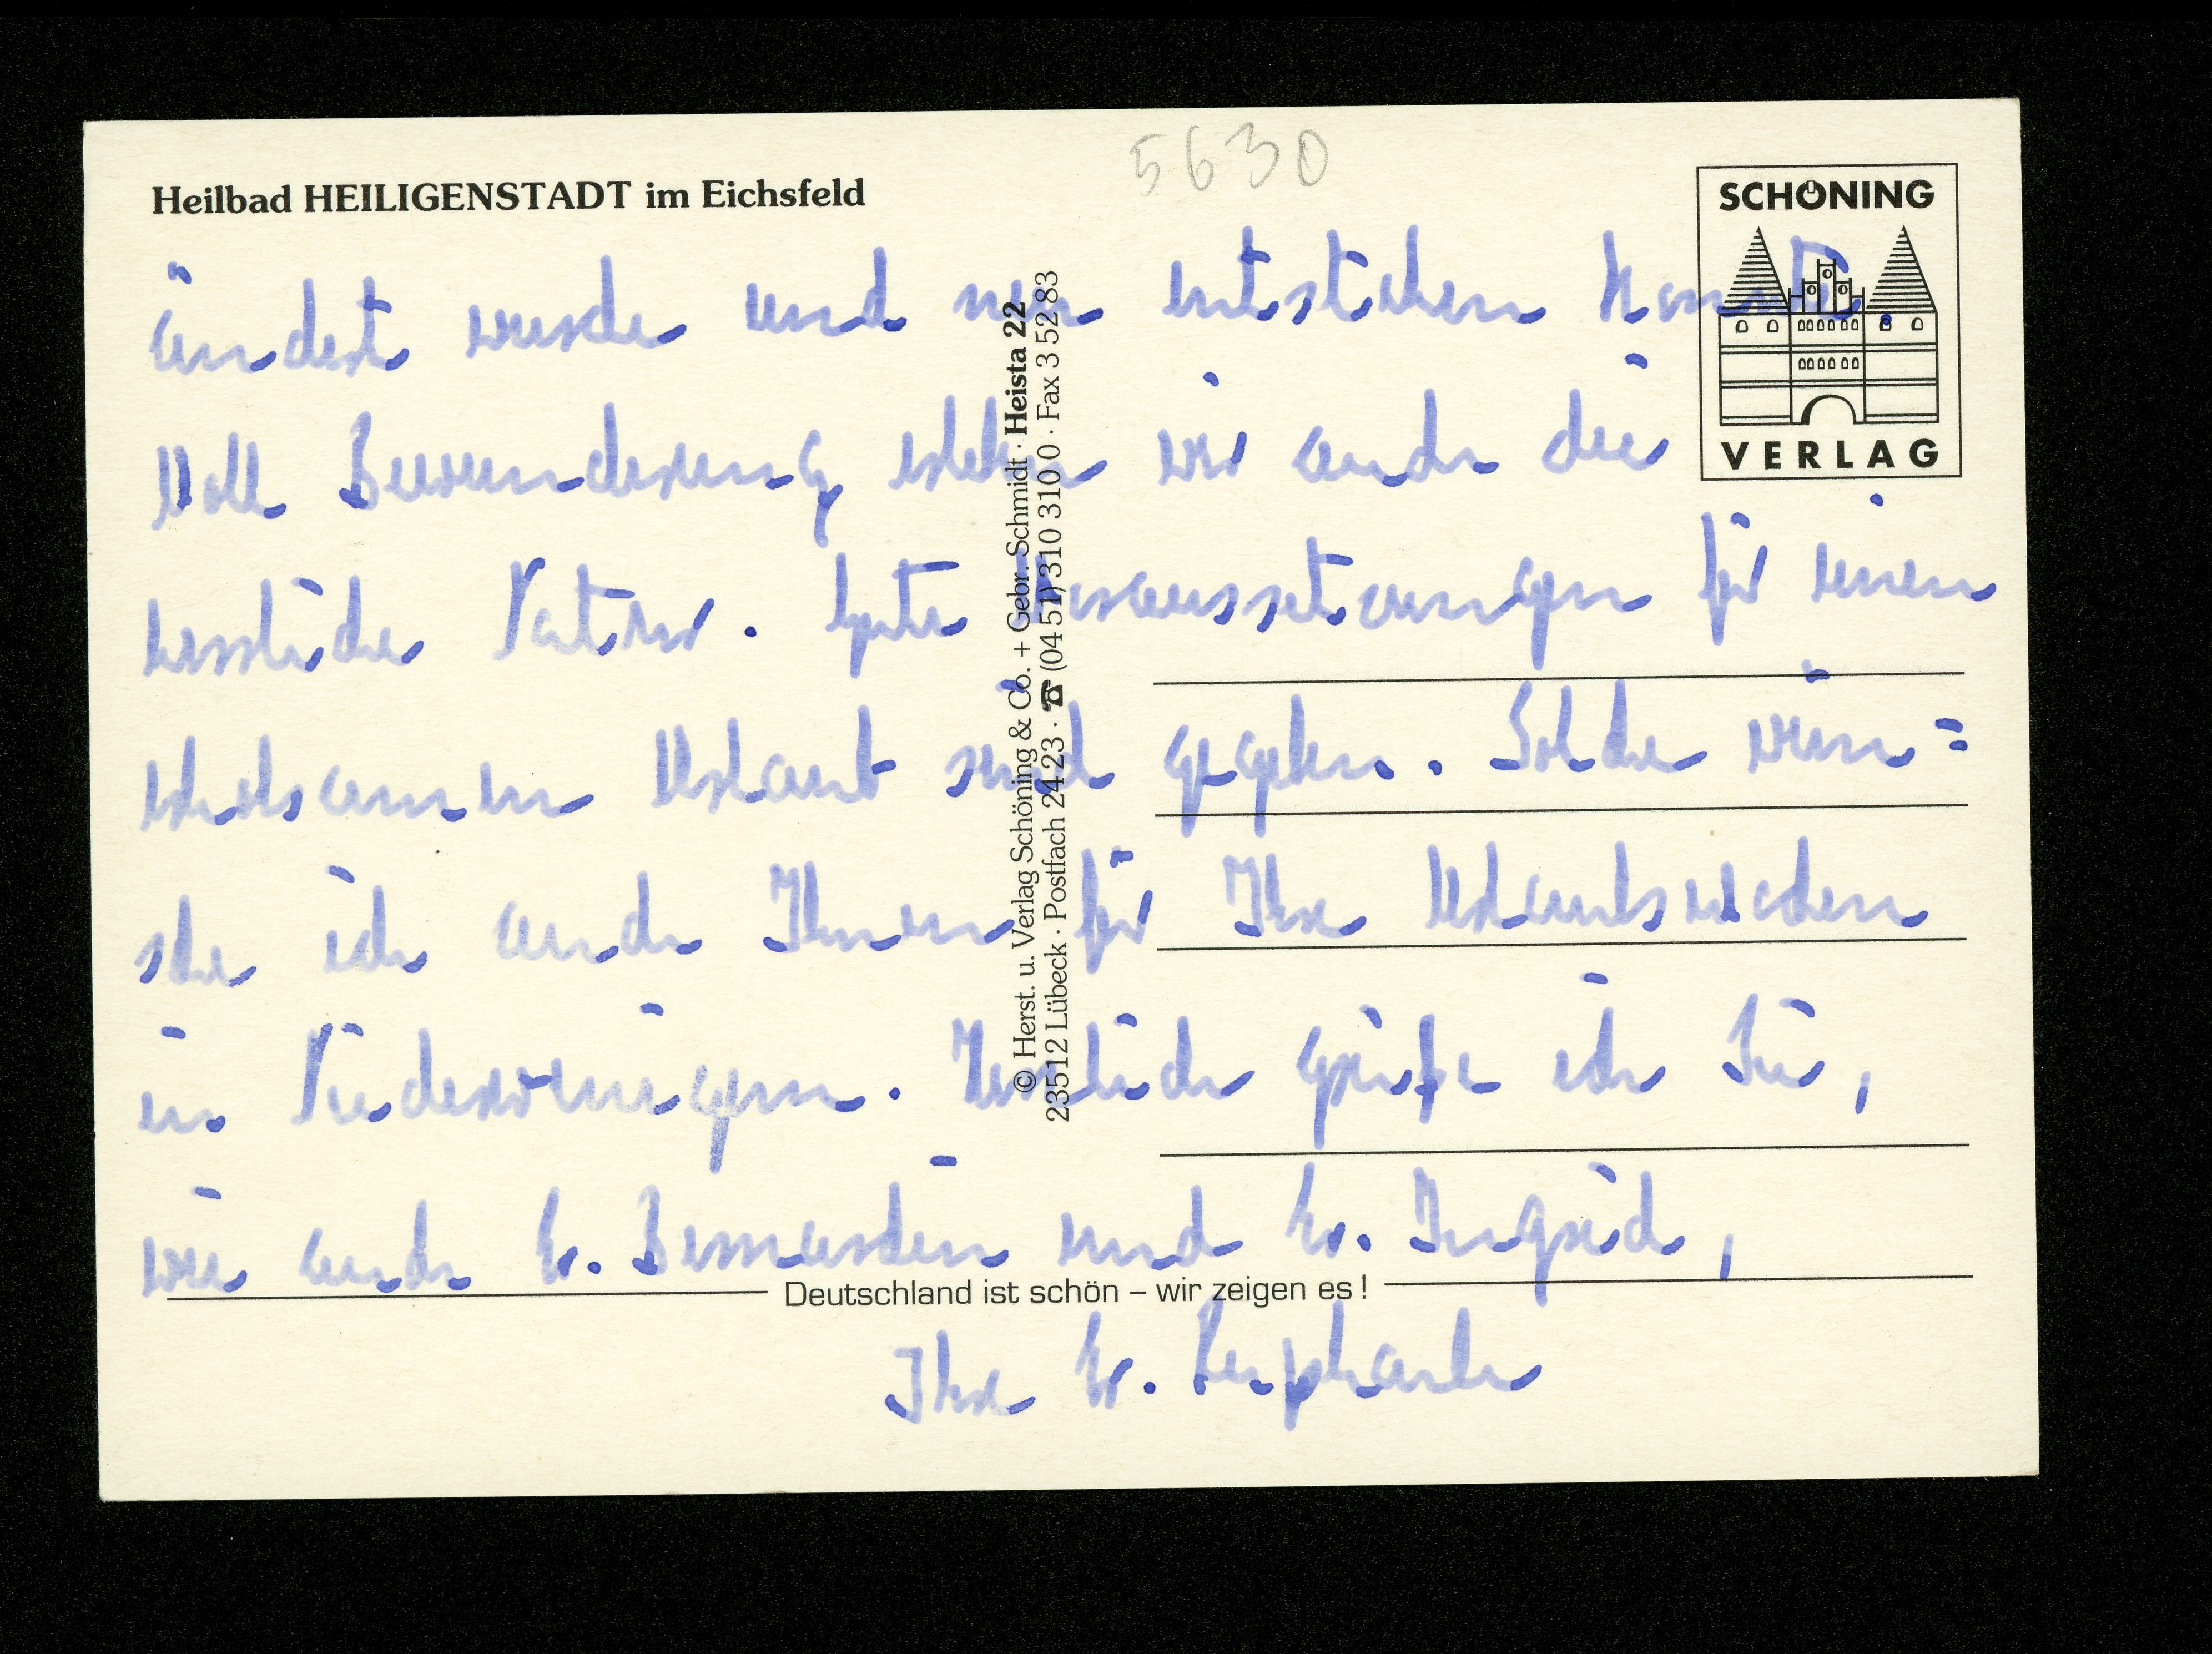 5630
Heilbad HEILIGENSTADT im Eichsfeld
SCHÖNING
VERLAG
ändert wurde und neu entstehen konnte.
Voll Bewunderung erleben wir auch die
herrliche Natur. Gute Voraussetzungen für einen
erholsamen Urlaub sind gegeben. Solche wün=
sche ich auch Ihnen für Ihre Urlaubswochen
in Niederorschel. Herzlich grüße ich Sie,
wie auch Sr. Bernardia und Sr. Ingrid,
Ihre Sr. Raphaela
© Herst. u. Verlag Schöning & Co. + Gebr. Schmidt · Heista 22
23512 Lübeck · Postfach 24 23 · ☎ (04 51) 310 310 0 · Fax 3 52 83
Deutschland ist schön – wir zeigen es!